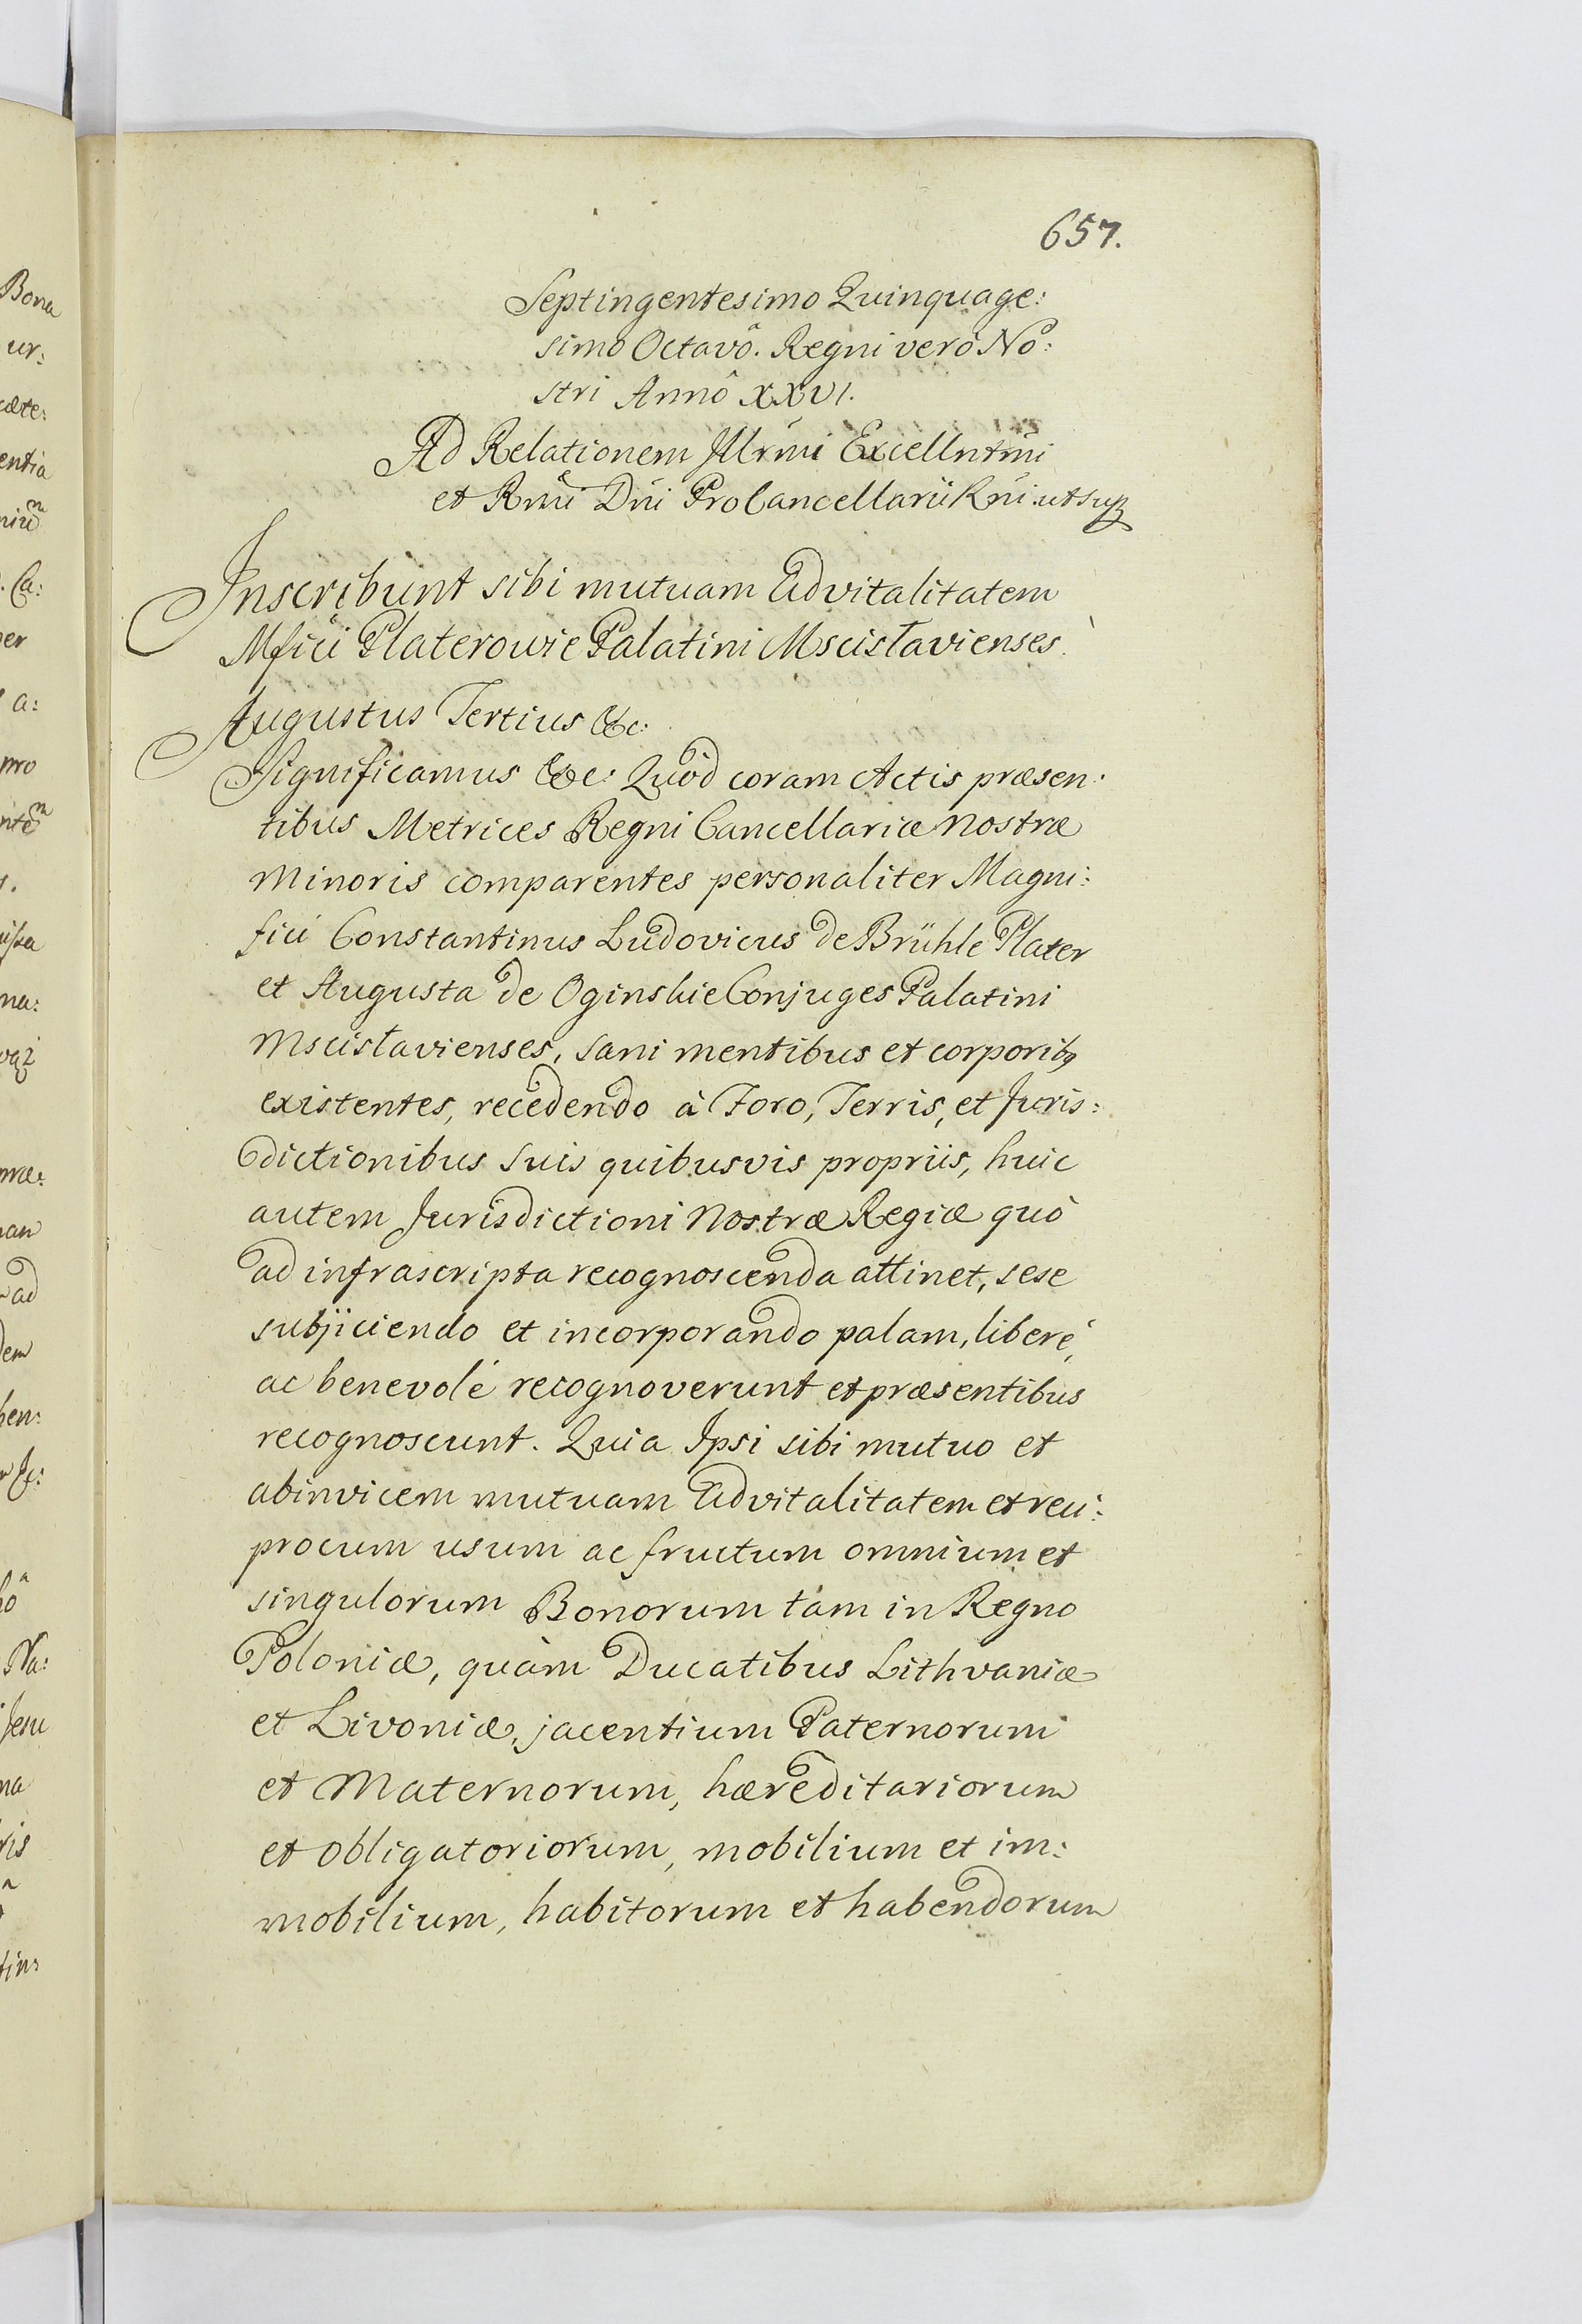 657.
Septingentesimo Quinquage:
simo Octavô. Regni verò No:
stri Annô XXVI.
Ad Relationem Illrmi Excellntmi
et Rmi Dni ProCancellarii Rni ut sup
Inscribunt sibi mutuam Advitalitatem
Mfici Platerowie Palatini Mscisłavienses.
Augustus Tertius &c:
Significamus &c: Quod coram Actis præsen:
tibus Metrices Regni Cancellariæ Nostræ
Minoris comparentes personaliter Magni:
fici Constantinus Ludovicus de Brühle Plater
et Augusta de Oginskie Conjuges Palatini
Mscisłavienses, sani mentibus et corporibq
existentes, recedendo à Foro, Terris, et Juris:
dictionibus suis quibusvis propriis, huic
autem Jurisdictioni Nostræ Regiæ quò
ad infrascripta recognoscenda attinet, sese
subjiciendo et incorporando palam, liberè,
ac benevolè recognoverunt et præsentibus
recognoscunt. Quia Ipsi sibi mutuo et
abinvicem mutuam Advitalitatem et reci:
procum usum ac fructum omnium et
singulorum Bonorum tàm in Regno
Poloniæ, quàm Ducatibus Lithvaniæ
et Livoniæ, jacentium Paternorum
et Maternorum, hæreditariorum
et obligatoriorum, mobilium et im:
mobilium, habitorum et habendorum